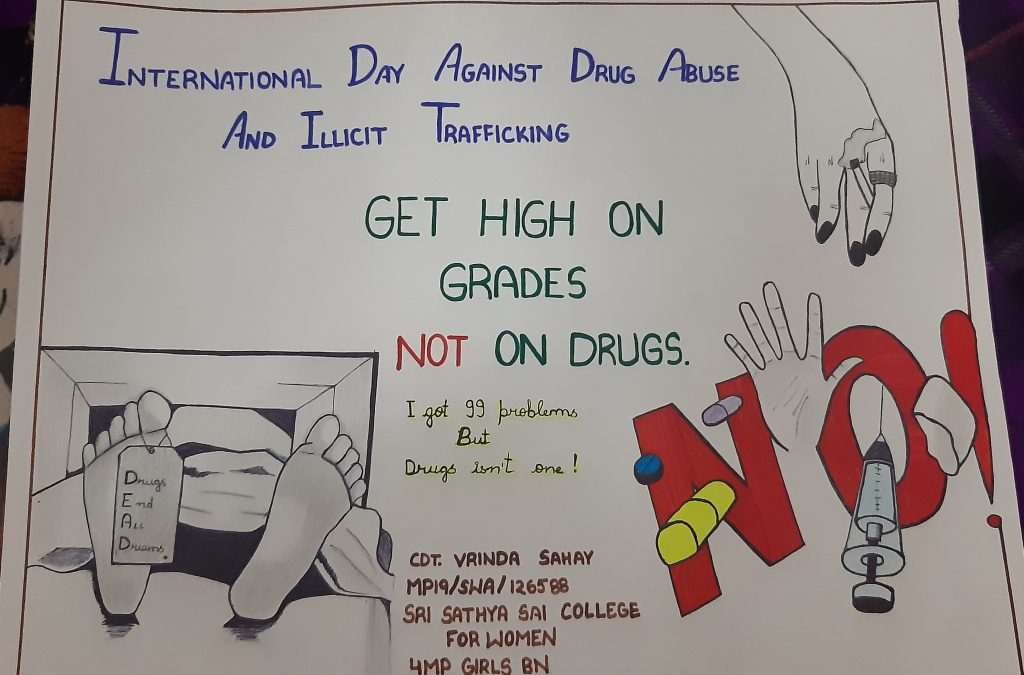 INTERNATIONAL DAY AGAINST DRUG ABUSE
AND ILLICIT TRAFFICKING
GET HIGH ON
GRADES
NOT ON DRUGS.
I got 99 problems
But
Drugs isn't one!
Drugs
End
All
Dreams.
NO!
CDT. VRINDA SAHAY
MP19/SWA/126588
SRI SATHYA SAI COLLEGE
FOR WOMEN
4MP GIRLS BN